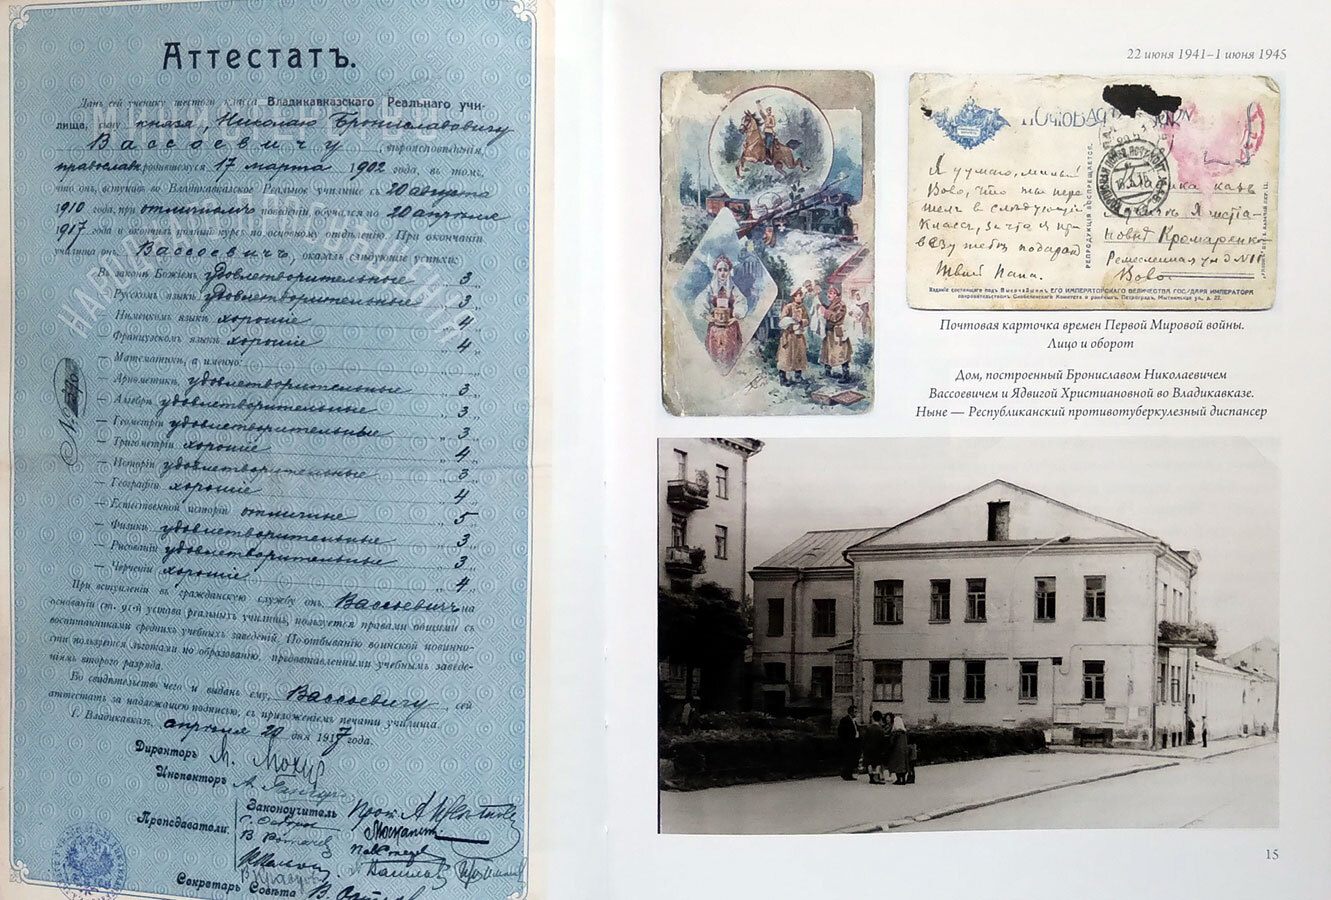 Аттестатъ.
Данъ сей ученику шестого класса Владикавказскаго Реальнаго учи-
лища, сыну князя, Николаю Брониславовичу
Вассоевичу, вѣроисповѣданія,
православ родившемуся 17 марта 1902 года, въ томъ,
что онъ, вступивъ во Владикавказское Реальное училище съ 20 августа
1910 года, при отличномъ поведеніи обучался по 20 апрѣля
1917 года и окончилъ полный курсъ по основному отдѣленію. При окончаніи
училища онъ, Вассоевичъ, оказалъ слѣдующіе успѣхи:
Въ законѣ Божіемъ удовлетворительные 3
— Русскомъ языкѣ удовлетворительные 3
— Нѣмецкомъ языкѣ хорошіе 4
— Французскомъ языкѣ хорошіе 4
— Математики, а именно:
— Ариѳметикѣ, удовлетворительные 3
— Алгебрѣ удовлетворительные 3
— Геометріи удовлетворительные 3
— Тригометріи хорошіе 4
— Исторіи удовлетворительные 3
— Географіи хорошіе 4
— Естественной исторіи отличные 5
— Физикѣ удовлетворительные 3
— Рисованіи удовлетворительные 3
— Черченіи хорошіе 4
При вступленіи въ гражданскую службу онъ, Вассоевичъ на
основаніи ст. 91-й устава реальныхъ училищъ, пользуется правами общими съ
воспитанниками среднихъ учебныхъ заведеній. По отбыванію воинской повинно-
сти пользуется льготами по образованію, предоставленными учебнымъ заведе-
ніямъ второго разряда.
Во свидѣтельство чего и выданъ ему, Вассоевичу сей
аттестатъ за надлежащею подписью, съ приложеніемъ печати училища.
Г. Владикавказъ, апрѣля 20 дня 1917 года.
Директоръ М.
Инспекторъ А.
Преподаватели:
Законоучитель Прот. А.
Секретарь Совѣта В.
22 июня 1941–1 июня 1945
Я думаю, милый
Вово, что ты пере
шелъ в слѣдующій
классъ, за что я при
везу тебѣ подарок
Твой Папа.
РЕПРОДУКЦІЯ ВОСПРЕЩАЕТСЯ.
Ремесленная ул д N
Вово
Изданіе состоящаго подъ Высочайшимъ ЕГО ИМПЕРАТОРСКАГО ВЕЛИЧЕСТВА ГОСУДАРЯ ИМПЕРАТОРА
покровительствомъ Скобелевскаго Комитета о раненыхъ. Петроградъ, Мытнинская ул., д. 27.
Почтовая карточка времен Первой Мировой войны.
Лицо и оборот
Дом, построенный Брониславом Николаевичем
Вассоевичем и Ядвигой Христиановной во Владикавказе.
Ныне — Республиканский противотуберкулезный диспансер
15